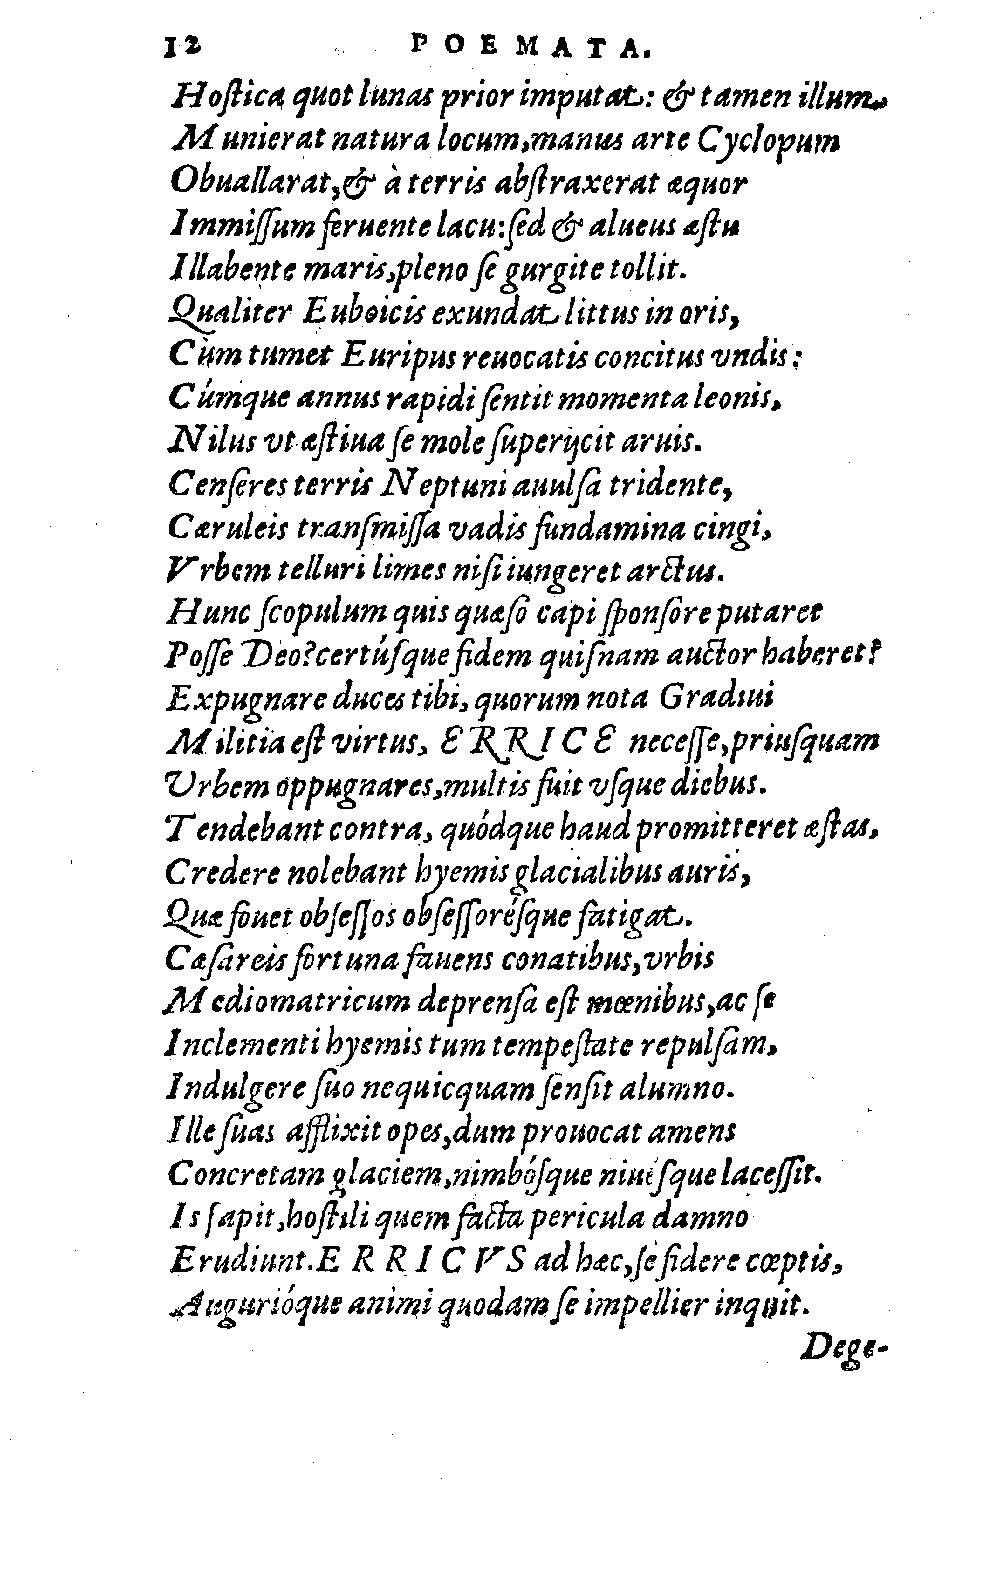 12 POEMATA.
Hoſtica quot lunas prior imputat: & tamen illum
Munierat natura locum, manus arte Cyclopum
Obuallarat, & à terris abſtraxerat æquor
Immiſſum feruente lacu: ſed & alueus æſtu
Illabente maris, pleno ſe gurgite tollit.
Qualiter Euboicis exundat littus in oris,
Cùm tumet Euripus reuocatis concitus vndis:
Cúmque annus rapidi ſentit momenta leonis,
Nilus vt æſtiua ſe mole ſuperijcit aruis.
Cenſeres terris Neptuni auulſa tridente,
Cæruleis tranſmiſſa vadis fundamina cingi,
Vrbem telluri limes niſi iungeret arctus.
Hunc ſcopulum quis quæſo capi ſponſore putaret
Poſſe Deo? certúſque fidem quiſnam auctor haberet?
Expugnare duces tibi, quorum nota Gradiui
Militia eſt virtus, ERRICE neceſſe, priuſquam
Vrbem oppugnares, multis fuit vſque diebus.
Tendebant contra, quódque haud promitteret æſtas,
Credere nolebant hyemis glacialibus auris,
Quæ fouet obſeſſos obſeſſoréſque fatigat.
Cæſareis fortuna fauens conatibus, vrbis
Mediomatricum deprenſa eſt mœnibus, ac ſe
Inclementi hyemis tum tempeſtate repulſam,
Indulgere ſuo nequicquam ſenſit alumno.
Ille ſuas afflixit opes, dum prouocat amens
Concretam glaciem, nimbóſque niuéſque laceſſit.
Is ſapit, hoſtili quem facta pericula damno
Erudiunt. ERRICVS ad hæc, ſe fidere cœptis,
Augurióque animi quodam ſe impellier inquit.
Dege-